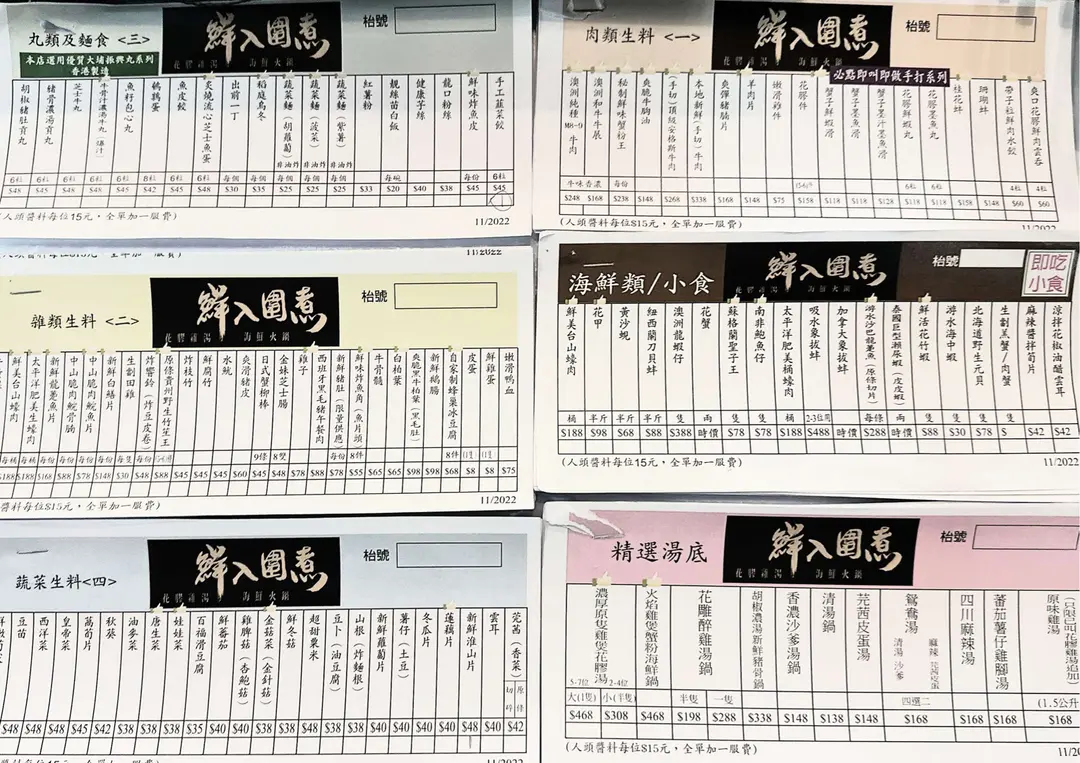 丸類及麵食 <三>
本店選用優質大埔振興丸系列
香港製造
鮮入圍煮
花膠雞湯 海鮮火鍋
枱號
胡椒豬貢丸
豬骨濃湯貢丸
芝士牛丸
魚籽包心丸
鵪鶉蛋
魚皮餃
爆燒流心芝士魚蛋
出前一丁
稻庭烏冬
蔬菜麵(胡蘿蔔)非油炸
蔬菜麵(菠菜)非油炸
蔬菜麵(紫薯)非油炸
紅薯粉
靚絲苗白飯
健康芋絲
龍口粉絲
鮮味炸魚皮
手工韮菜餃
6粒 6粒 6粒 6粒 6粒 8粒 6粒 6粒 每個 每個 每個 每個 每個 每碗 每份 6粒
$48 $45 $48 $48 $45 $42 $45 $48 $30 $35 $25 $25 $25 $33 $20 $40 $38 $45 $45
(人頭醬料每位15元，全單加一服費)
11/2022
肉類生料 <一>
鮮入圍煮
花膠雞湯 海鮮火鍋
枱號
必點即叫即做手打系列
澳洲純種M8-9牛肉
澳洲和牛牛展
秘制鮮味蟹粉王
爽脆牛胸油
(手切)頂級安格斯牛肉
本地新鮮(手切)牛肉
爽彈豬腩片
羊肉片
嫩滑雞件
花膠件
蟹子鮮蝦滑
蟹子墨魚滑
蟹子墨汁墨魚滑
花膠鮮蝦丸
花膠墨魚丸
桂花蚌
珊瑚蚌
帶子粒鮮肉水餃
爽口花膠鮮肉雲吞
牛味香濃 每份 6粒 6粒 4粒 4粒
$248 $168 $238 $148 $268 $338 $168 $148 $75 $158 $118 $118 $118 $118 $118 $158 $148 $60 $60
(人頭醬料每位$15元，全單加一服費)
11/2022
雜類生料 <二>
鮮入圍煮
花膠雞湯 海鮮火鍋
枱號
鮮美台山蠔肉
太平洋肥美生蠔肉
新鮮龍躉魚片
中山脆肉鯇骨腩
中山脆肉鯇魚片
新鮮白鱔片
生劏田雞
炸響鈴(炸豆皮卷)
原條貴州野生竹笙王
炸枝竹
鮮腐竹
水魷
爽滑豬皮
日式蟹柳棒
金妹芝士腸
雞子
西班牙黑毛豬午餐肉
新鮮豬肚(限量供應)
鮮味炸魚角(魚片頭)
牛骨髓
白柏葉
爽脆黑牛柏葉(黑毛肚)
新鮮鵝腸
自家制蜂巢冰豆腐
皮蛋
鮮雞蛋
嫩滑鴨血
9條 8雙 每份 8件 8件 (1隻) (1隻)
$188 $188 $168 $88 $78 $148 $30 $48 $88 $45 $45 $45 $60 $45 $48 $78 $88 $78 $55 $65 $65 $98 $98 $68 $8 $8 $75
醬料每位$15元，全單加一服費)
11/2022
海鮮類/小食
鮮入圍煮
花膠雞湯 海鮮火鍋
枱號
即吃
小食
鮮美台山蠔肉
花甲
黃沙蜆
紐西蘭刀貝蚌
澳洲龍蝦仔
花蟹
蘇格蘭聖子王
南非鮑魚仔
太平洋肥美桶蠔肉
吸水象拔蚌
加拿大象拔蚌
游水沙巴龍躉魚(原條切片)
泰國巨型瀨尿蝦(皮皮蝦)
鮮活花竹蝦
游水海中蝦
北海道野生元貝
生劏羔蟹/肉蟹
麻辣醬拌筍片
涼拌花椒油醋雲耳
桶 半斤 半斤 半斤 隻 両 隻 隻 桶 2-3位用 両 每條 両 隻 隻 隻 隻
$188 $98 $68 $88 $388 時價 $78 $78 $188 $488 時價 $288 時價 $88 $30 $78 $ $42 $42
(人頭醬料每位15元，全單加一服費)
11/2022
蔬菜生料<四>
鮮入圍煮
花膠雞湯 海鮮火鍋
枱號
豆苗
西洋菜
皇帝菜
萵筍片
秋葵
油麥菜
唐生菜
娃娃菜
百福滑豆腐
鮮蕃茄
雞脾菇(杏鮑菇)
金菇菜(金針菇)
鮮冬菇
超甜粟米
豆卜(油豆腐)
山根(炸麵根)
新鮮蘿蔔片
薯仔(土豆)
冬瓜片
蓮藕片
新鮮淮山片
雲耳
芫茜(香菜)
切碎 原條
$48 $48 $48 $48 $45 $42 $38 $38 $35 $40 $40 $38 $38 $38 $38 $38 $40 $40 $40 $48 $48 $40 $42
11/2022
精選湯底
鮮入圍煮
花膠雞湯 海鮮火鍋
枱號
濃厚原隻雞煲花膠湯
5-7位 2-4位
火焰雞煲蟹粉海鮮鍋
花雕醉雞湯鍋
胡椒濃湯新鮮豬骨鍋
香濃沙爹湯鍋
清湯鍋
芫茜皮蛋湯
鴛鴦湯
清湯 沙爹 麻辣 芫茜皮蛋
四川麻辣湯
蕃茄薯仔雞腳湯
原味雞湯(只限已叫花膠雞湯追加)
大(1隻) 小(半隻) 半隻 一隻 四選二 (1.5公升
$468 $308 $468 $198 $288 $338 $148 $138 $148 $168 $168 $168 $168
(人頭醬料每位$15元，全單加一服費)